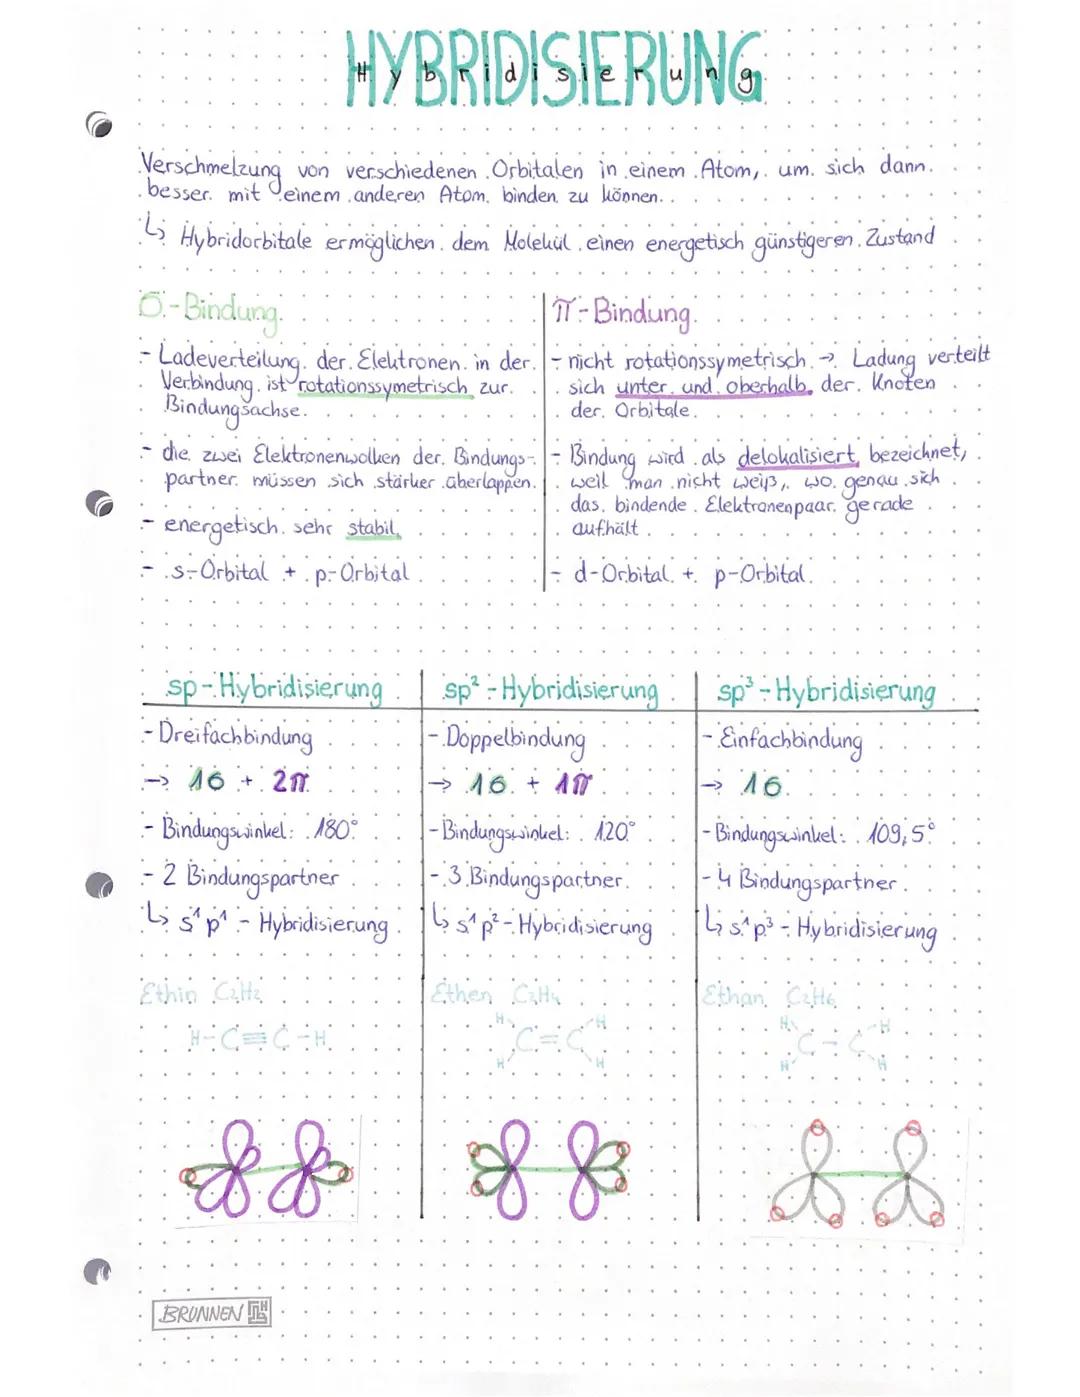 HYBRIDISIERUNG
Hybridisierung
Verschmelzung von verschiedenen Orbitalen in einem Atom, um sich dann
besser mit einem anderen Atom binden zu können.
↳ Hybridorbitale ermöglichen dem Molekül einen energetisch günstigeren Zustand
σ-Bindung
- Ladeverteilung der Elektronen in der
Verbindung ist rotationssymetrisch zur
Bindungsachse.
- die zwei Elektronenwolken der Bindungs-
partner müssen sich stärker überlappen.
- energetisch sehr stabil
- s-Orbital + p-Orbital
π-Bindung
- nicht rotationssymetrisch → Ladung verteilt
sich unter und oberhalb der Knoten
der Orbitale
- Bindung wird als delokalisiert bezeichnet,
weil man nicht weiß, wo genau sich
das bindende Elektronenpaar gerade
aufhält
- d-Orbital + p-Orbital
sp-Hybridisierung
- Dreifachbindung
→ 1σ + 2π
- Bindungswinkel: 180°
- 2 Bindungspartner
↳ s¹p¹ - Hybridisierung
Ethin C₂H₂
H-C≡C-H
sp²-Hybridisierung
- Doppelbindung
→ 1σ + 1π
- Bindungswinkel: 120°
- 3 Bindungspartner
↳ s¹p²-Hybridisierung
Ethen C₂H₄
H H
C=C
H H
sp³-Hybridisierung
- Einfachbindung
→ 1σ
- Bindungswinkel: 109,5°
- 4 Bindungspartner
↳ s¹p³-Hybridisierung
Ethan C₂H₆
H H
C-C
H H
BRUNNEN